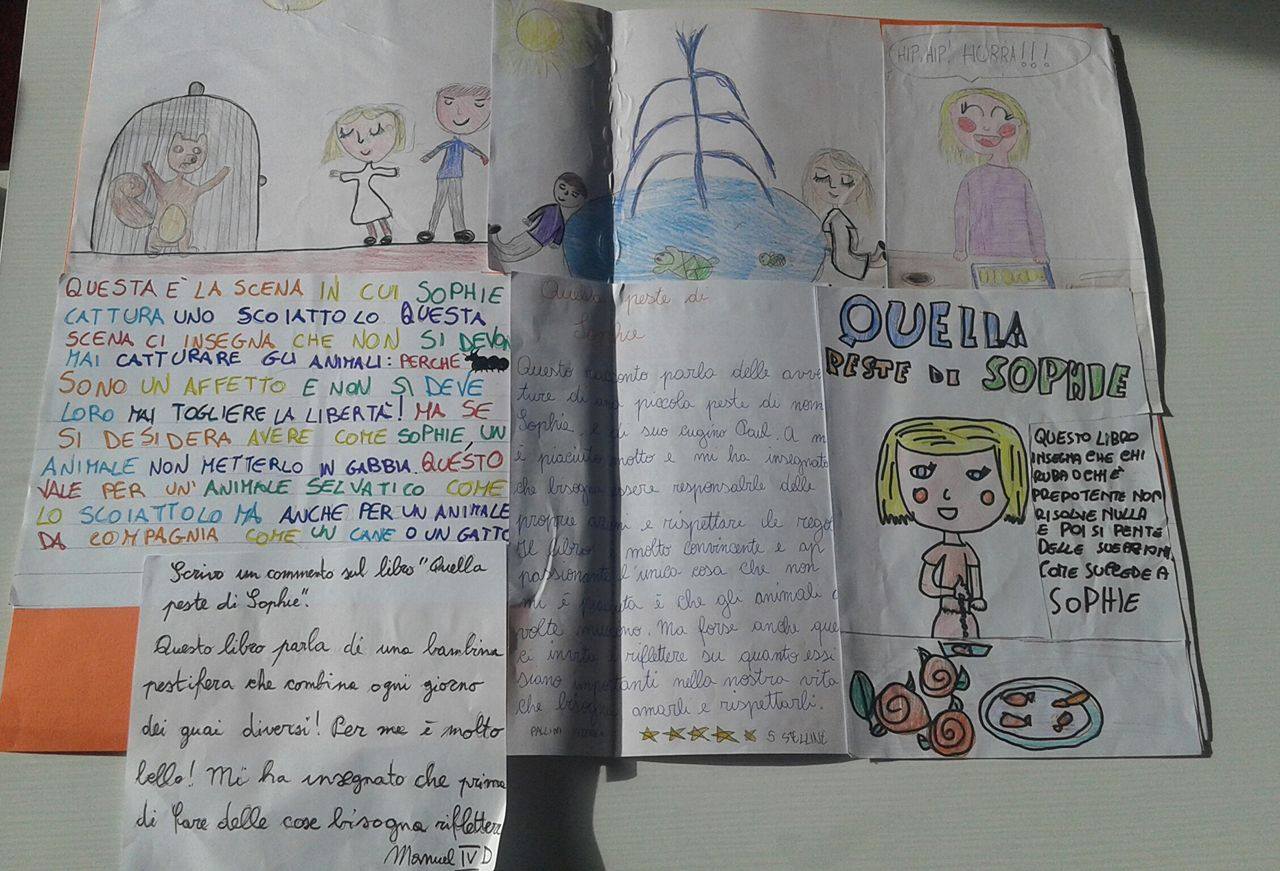 HIP, HIP! HURRA!!!
QUESTA E' LA SCENA IN CUI SOPHIE
CATTURA UNO SCOIATTOLO QUESTA
SCENA CI INSEGNA CHE NON SI DEVON
MAI CATTURARE GLI ANIMALI: PERCHE
SONO UN AFFETTO E NON SI DEVE
LORO MAI TOGLIERE LA LIBERTA'! MA SE
SI DESIDERA AVERE COME SOPHIE, UN
ANIMALE NON METTERLO IN GABBIA. QUESTO
VALE PER UN' ANIMALE SELVATICO COME
LO SCOIATTOLO MA ANCHE PER UN ANIMALE
DA COMPAGNIA COME UN CANE O UN GATTO
Scrivo un commento sul libro "Quella
peste di Sophie".
Questo libro parla di una bambina
pestifera che combina ogni giorno
dei guai diversi! Per me è molto
bello! Mi ha insegnato che prima
di fare delle cose bisogna riflettere
Manuel IV D
peste di
Sophie
Questo racconto parla delle avve
ture di una piccola peste di nom
Sophie e di suo cugino Paul. A m
è piaciuto molto e mi ha insegnato
che bisogna essere responsabile delle
proprie azioni e rispettare le rego
Il libro è molto convincente e ap
passionante l'unica cosa che non
mi è piaciuta è che gli animali a
volte muoiono. Ma forse anche que
ci invita a riflettere su quanto essi
siano importanti nella nostra vita
che bisogna amarli e rispettarli.
PALLINI
5 STELLINE
QUELLA
PESTE DI SOPHIE
QUESTO LIBRO
INSEGNA CHE CHI
RUBA O CHI È
PREPOTENTE NON
RISOLVE NULLA
E POI SI PENTE
DELLE SUE AZIONI
COME SUCCEDE A
SOPHIE